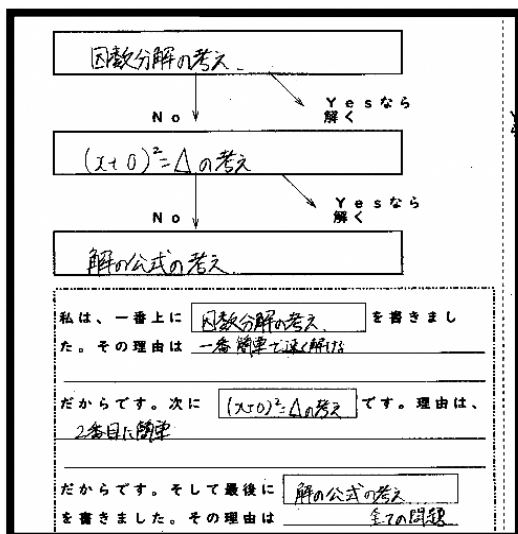 因数分解の考え
No
Yesなら
解く
(x+○)²=△の考え
No
Yesなら
解く
解の公式の考え
私は、一番上に 因数分解の考え を書きまし
た。その理由は 一番簡単で速く解ける
だからです。次に (x+○)²=△の考え です。理由は、
2番目に簡単
だからです。そして最後に 解の公式の考え
を書きました。その理由は 全ての問題